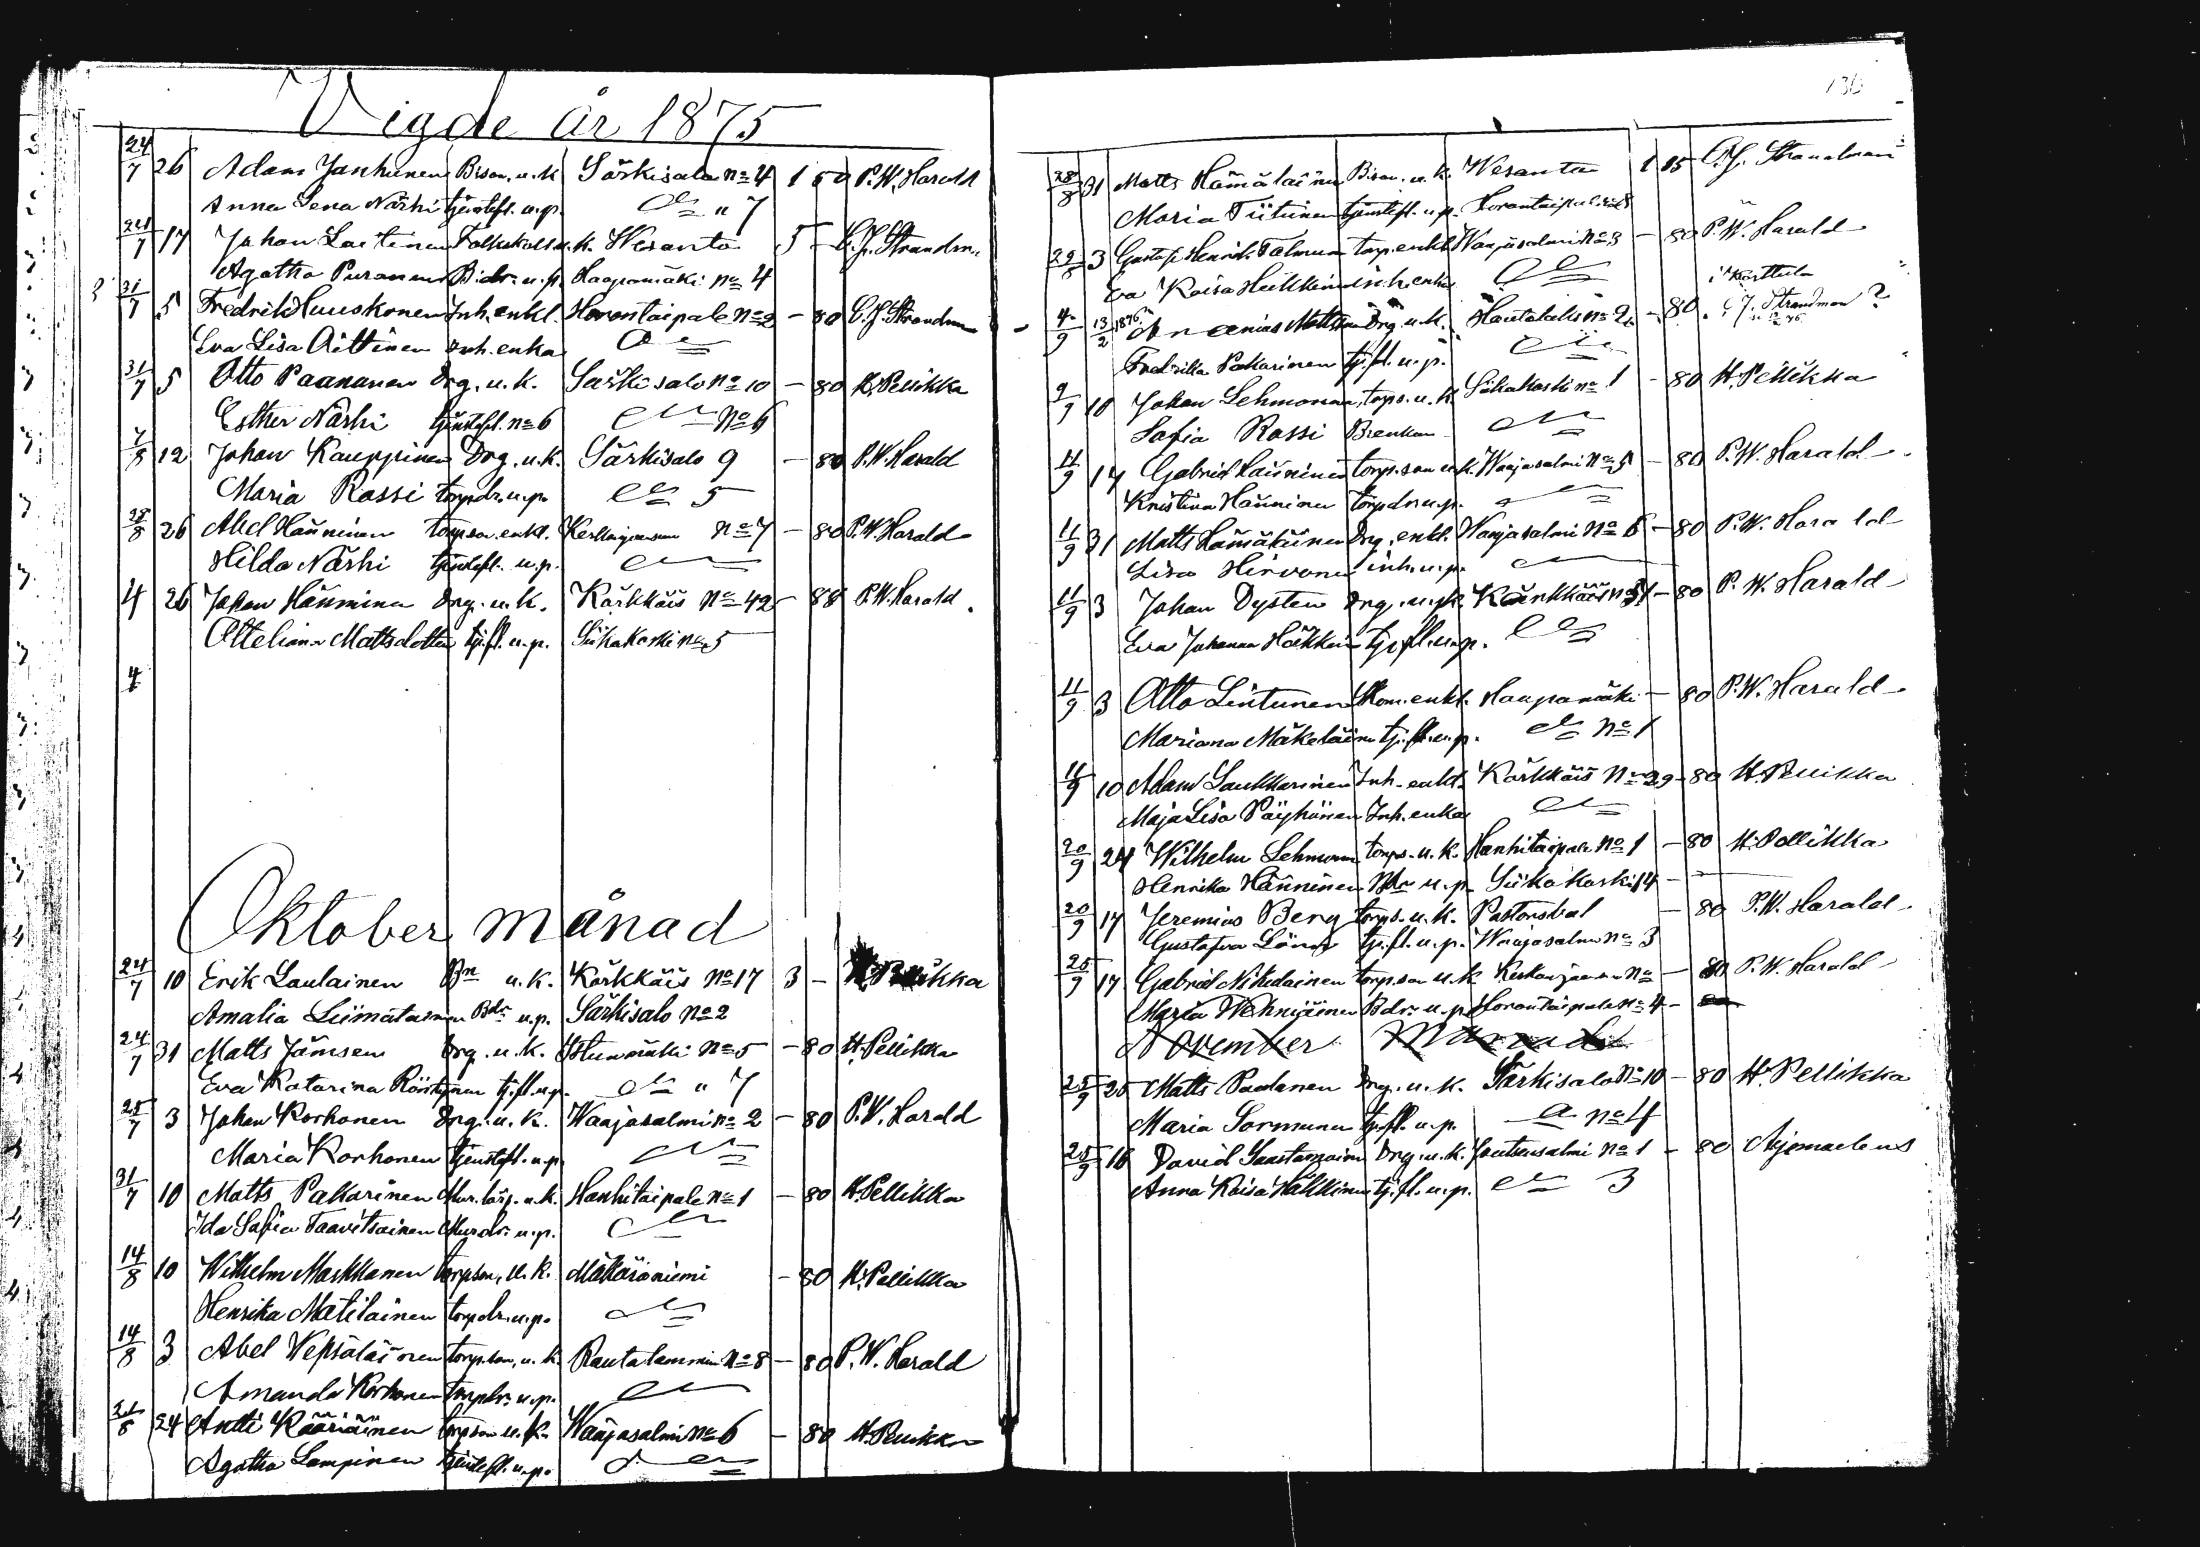 Vigde år 1875
24/7 26 Adam Janhunen Bson. u.k. Särkisalo No 4 1 50 P.W. Harald
Anna Lena Närhi tjenstefl. u.p. " 7
24/7 17 Johan Laitinen u.k. Wesanto 5 - C.J. Strandm.
Agatha Puranen Bdr. u.p. Haapamäki No 4
31/7 5 Fredrik Huuskonen Inh. enkl. Horontaipale No 2 - 80 C.J. Strandm
Eva Lisa Aittinen Inh. enka
31/7 5 Otto Paananen Drg. u.k. Särkisalo No 10 - 80 H. Pellikka
Esther Närhi tjenstefl. No 6 No 6
7/8 12 Johan Kauppinen Drg. u.k. Särkisalo 9 - 80 P.W. Harald
Maria Rossi torpdr. u.p. 5
28/8 26 Abel Hänninen torpson. enkl. No 7 - 80 P.W. Harald
Hilda Närhi tjenstefl. u.p.
4 26 Johan Hänninen Drg. u.k. Kärkkäis No 42 - 88 P.W. Harald
Mattsdotter tj.fl. u.p. Siikakoski No 5
4
Oktober månad
24/7 10 Erik Laulainen Bn u.k. Kärkkäis No 17 3 - H. Pellikka
Amalia Liimatainen Bdr u.p. Särkisalo No 2
24/7 31 Matts Jämsen Drg. u.k. No 5 - 80 H. Pellikka
Eva Katarina tj.fl. u.p. " 7
25/7 3 Johan Korhonen Drg. u.k. Waajasalmi No 2 - 80 P.W. Harald
Maria Korhonen tjenstefl. u.p.
31/7 10 Matts Pakarinen u.k. Hanhitaipale No 1 - 80 H. Pellikka
Ida Sofia Taavitsainen u.p.
14/8 10 Wilhelm Markkanen torpson, u.k. Mättäräniemi - 80 H. Pellikka
Henrika Matilainen torpdr. u.p.
14/8 3 Abel Wepsäläinen torpson, u.k. Rautalammin No 8 - 80 P.W. Harald
Amanda Korhonen torpdr. u.p.
21/8 24 Antti Kääriäinen torpson u.k. Waajasalmi No 6 - 80 H. Pellikka
Agatha Lampinen tjenstefl. u.p.
136
28/8 31 Matts Hämäläinen Bson. u.k. Wesanto 1 85 C.J. Strandman
Maria Tiitinen tjenstefl. u.p. Horontaipale
29/8 3 Gustaf Henrik Talmun torp. enkl Waajasalmi No 3 - 80 P.W. Harald
Eva Kaisa Heikkinen inh. enka
4/9 13/2 1876 Ananias Drg. u.k. Hautolaks No 2 - 80. i Karttula C.J. Strandman ?
Fredrika Pakarinen tj.fl. u.p.
9/9 10 Johan Lehmonen, torps. u.k. Siikakoski No 1 - 80 H. Pellikka
Sofia Rossi Benkan
11/9 17 Gabriel torpson u.k. Waajasalmi No 5 - 80 P.W. Harald
Kristina Hänninen torpdr. u.p.
11/9 31 Matts Hämäläinen Drg. enkl. Waajasalmi No 6 - 80 P.W. Harald
Lisa Hirvonen inh. u.p.
11/9 3 Johan Dysten Drg. u.k. Kärkkäis - 80 P.W. Harald
Eva Johanna Häkkin tj.fl. u.p.
11/9 3 Otto Lintunen enkl. Haapamäki - 80 P.W. Harald
Mariana Mäkeläinen tj.fl. u.p. No 1
11/9 10 Adam Laukkarinen Inh. enkl. Kärkkäis No 29 - 80 H. Pellikka
Maja Lisa Päyhönen Inh. enka
20/9 24 Wilhelm Lehmonen torps. u.k. Hanhitaipale No 1 - 80 H. Pellikka
Henrika Hänninen Bdr u.p. Siikakoski 14 -
20/9 17 Jeremias Berg torps. u.k. Pastorsbol - 80 P.W. Harald
Gustafva tj.fl. u.p. Waajasalmi No 3
25/9 17 Gabriel torpson u.k. No - 80 P.W. Harald
Maria Wehniäinen Bdr. u.p. Horontaipale No 4 -
November Månad
25/9 25 Matts Paananen Drg. u.k. Särkisalo No 10 - 80 H. Pellikka
Maria Sormunen tj.fl. u.p. No 4
25/9 16 David Saastamoinen Drg. u.k. No 1 - 80 Ajomaelens
Anna Kaisa tj.fl. u.p. 3